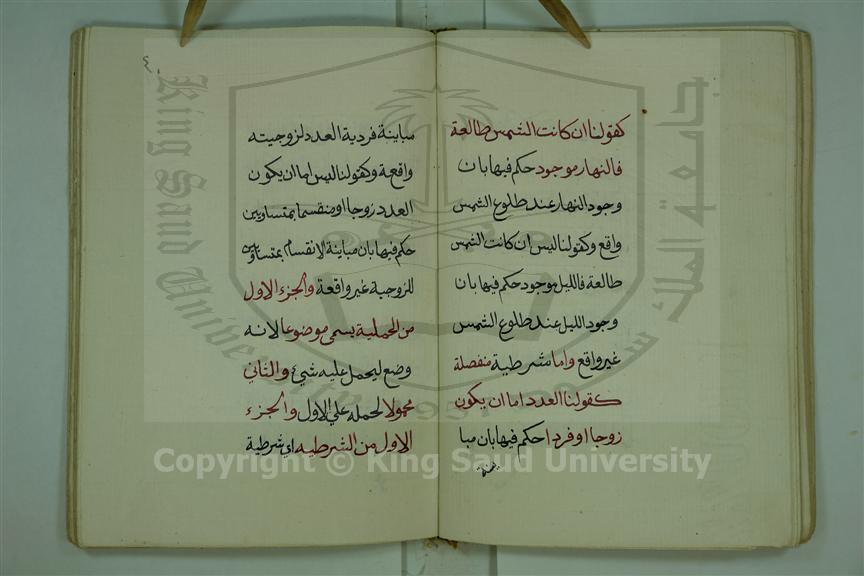 كقولنا ان كانت الشمس طالعة
فالنهار موجود حكم فيها بان
وجود النهار عند طلوع الشمس
واقع وكقولنا ليس ان كانت الشمس
طالعة فالليل موجود حكم فيها بان
وجود الليل عند طلوع الشمس
غير واقع واما شرطية منفصلة
كقولنا العدد اما ان يكون
زوجا او فردا حكم فيها بان مبا
ينة
مباينة فردية العدد لزوجيته
واقعة وكقولنا ليس اما ان يكون
العدد زوجا او منقسما بمتساويين
حكم فيها بان مباينة الانقسام بمتساويين
للزوجية غير واقعة والجزء الاول
من الحملية يسمى موضوعا لانه
وضع ليحمل عليه شيء والثاني
محمولا لحمله علي الاول والجزء
الاول من الشرطيه اي شرطية
جامعة الملك سعود
King Saud University
1957
Copyright © King Saud University